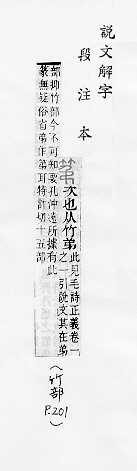 說文解字
段注本
次也从竹弟
此見毛詩正義卷一
之一引說文其在弟
部抑竹部今不可知要孔沖遠所據有此
篆無疑俗省弟作弟耳特計切十五部
(竹部 P.201)